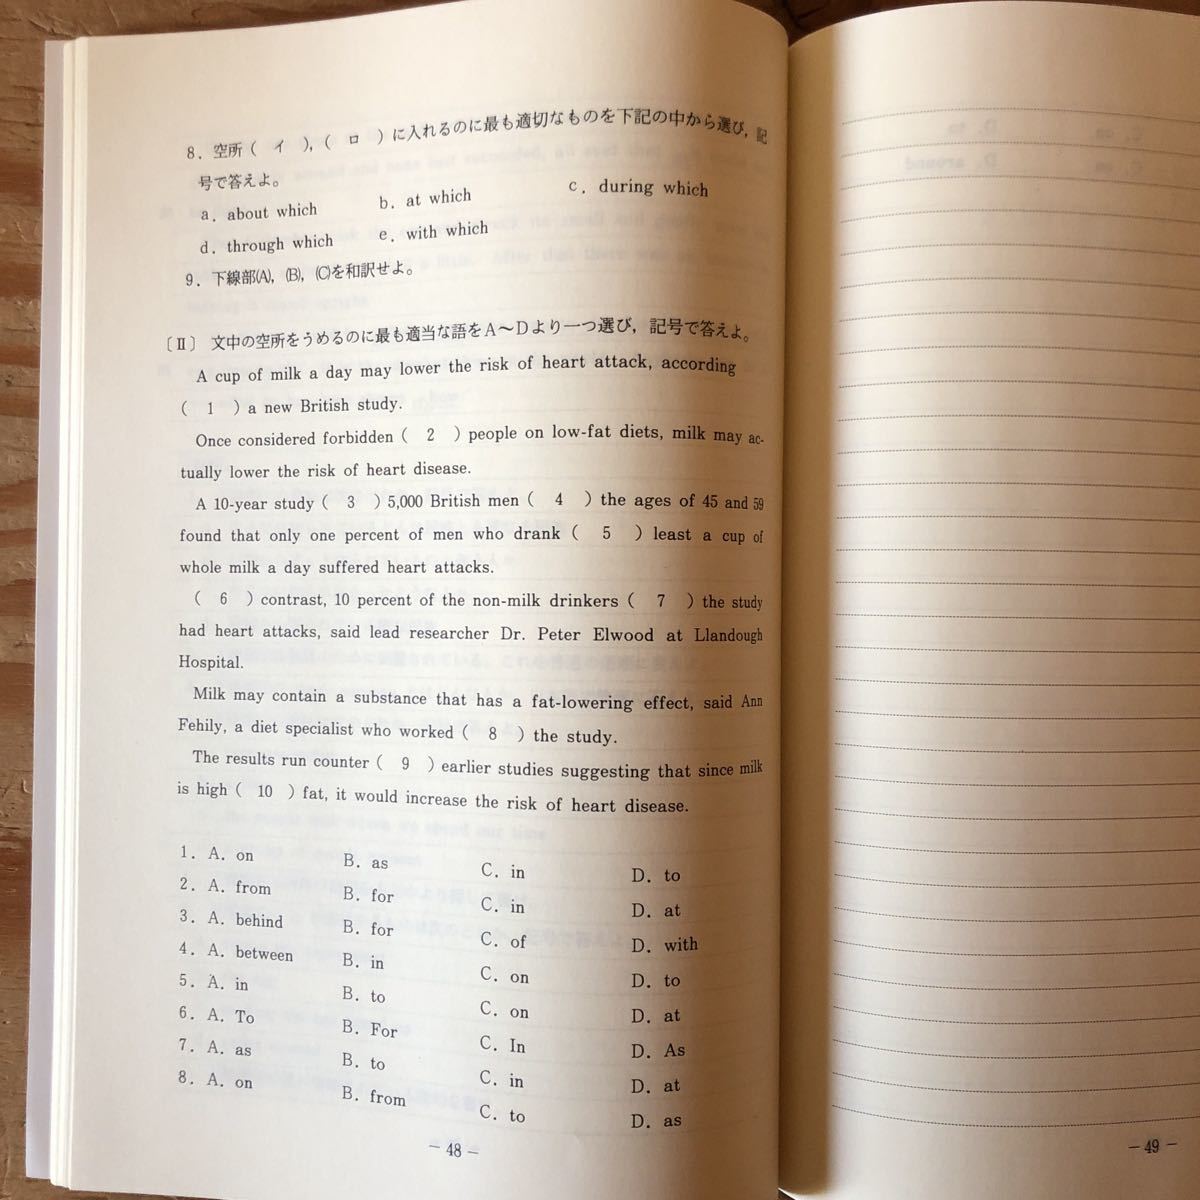 8．空所（　イ　），（　ロ　）に入れるのに最も適切なものを下記の中から選び，記
号で答えよ。
a．about which　b．at which　c．during which
d．through which　e．with which
9．下線部(A)，(B)，(C)を和訳せよ。
〔Ⅱ〕 文中の空所をうめるのに最も適当な語をA〜Dより一つ選び，記号で答えよ。
A cup of milk a day may lower the risk of heart attack, according
(　1　) a new British study.
Once considered forbidden (　2　) people on low-fat diets, milk may ac-
tually lower the risk of heart disease.
A 10-year study (　3　) 5,000 British men (　4　) the ages of 45 and 59
found that only one percent of men who drank (　5　) least a cup of
whole milk a day suffered heart attacks.
(　6　) contrast, 10 percent of the non-milk drinkers (　7　) the study
had heart attacks, said lead researcher Dr. Peter Elwood at Llandough
Hospital.
Milk may contain a substance that has a fat-lowering effect, said Ann
Fehily, a diet specialist who worked (　8　) the study.
The results run counter (　9　) earlier studies suggesting that since milk
is high (　10　) fat, it would increase the risk of heart disease.
1．A．on　B．as　C．in　D．to
2．A．from　B．for　C．in　D．at
3．A．behind　B．for　C．of　D．with
4．A．between　B．in　C．on　D．to
5．A．in　B．to　C．on　D．at
6．A．To　B．For　C．In　D．As
7．A．as　B．to　C．in　D．at
8．A．on　B．from　C．to　D．as
— 48 —
— 49 —